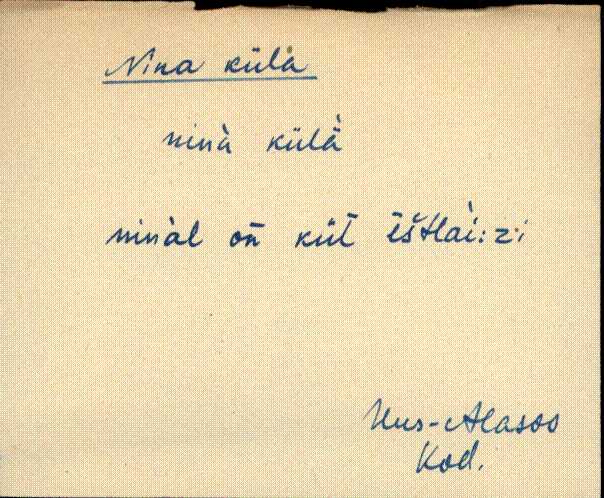 Nina küla
ninà külà
ninàl on̄ küt̄ ēštlài:zi
Uus-Alasoo
Kod.